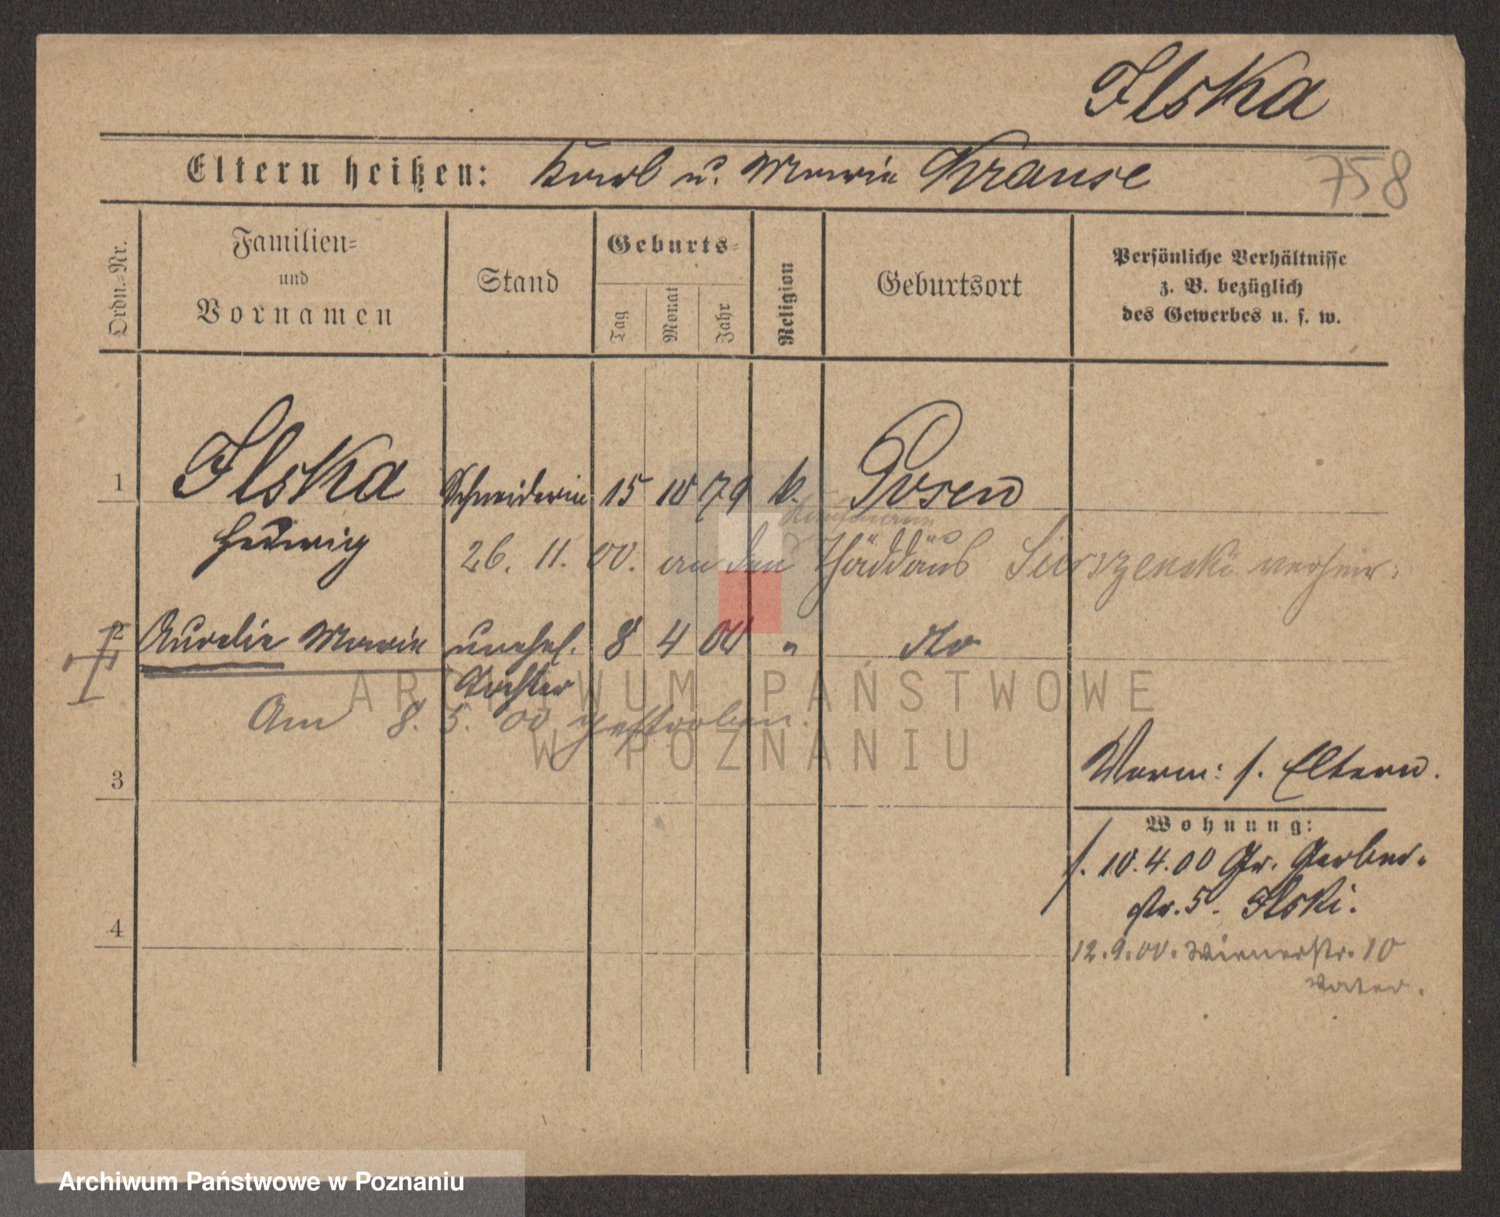 Ilska
Eltern heißen: Karl u. Marie Krause
758
Ordn.-Nr.
Familien-
und
Vornamen
Stand
Geburts-
Tag
Monat
Jahr
Religion
Geburtsort
Persönliche Verhältnisse
z. B. bezüglich
des Gewerbes u. s. w.
1 Ilska Schneiderin 15 10 79 k. Posen
Hedwig
26. 11. 00. an den Thäddäus verheir.
2 Aurelie Marie unehel. 8 4 00 " dto
Tochter
Am 8. 5. 00 gestorben.
3
Worm: s. Eltern.
Wohnung:
s. 10.4.00 Gr. Gerber-
str. 5. Ilski.
4
12.9.00. Wienerstr. 10
Vater.
ARCHIWUM PAŃSTWOWE
W POZNANIU
Archiwum Państwowe w Poznaniu